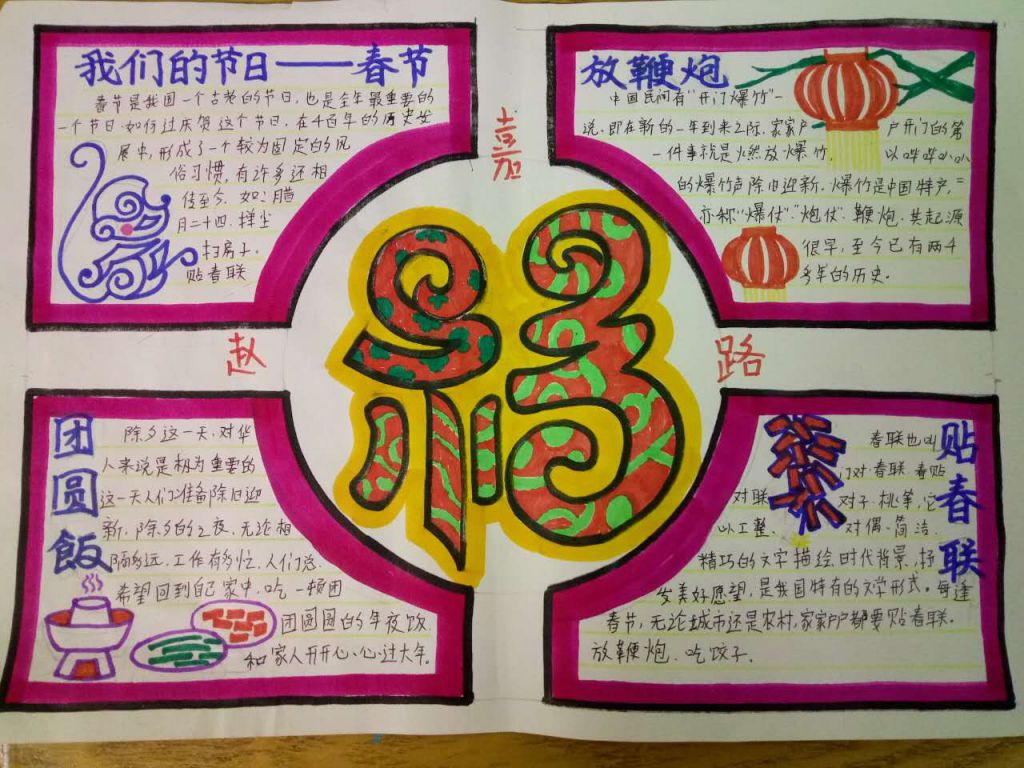 我们的节日——春节
春节是我国一个古老的节日,也是全年最重要的
一个节日.如何过庆贺这个节日,在4百年的历史发
展中,形成了一个较为固定的风
俗习惯,有许多还相
传至今.如:腊
月二十四.掸尘
扫房子.
贴春联
放鞭炮
中国民间有"开门爆竹"一
说.即在新的一年到来之际,家家户
户开门的第
一件事就是燃放爆竹,
以哔哔叭叭
的爆竹声除旧迎新.爆竹是中国特产,
亦称"爆仗"."炮仗".鞭炮.其起源
很早,至今已有两4
多年的历史.
嘉
赵
路
福
团圆飯
除夕这一天,对华
人来说是极为重要的
这一天人们准备除旧迎
新,除夕的之夜,无论相
隔多远,工作有多忙,人们总
希望回到自己家中,吃一顿团
团圆圆的年夜饭
和家人开开心心过大年.
贴春联
春联也叫
门对.春联.春贴
对联
对子.桃笔,它
以工整
对偶.简洁.
精巧的文字描绘时代背景,抒
发美好愿望,是我国特有的文学形式.每逢
春节,无论城市还是农村,家家户户都要贴春联.
放鞭炮.吃饺子.